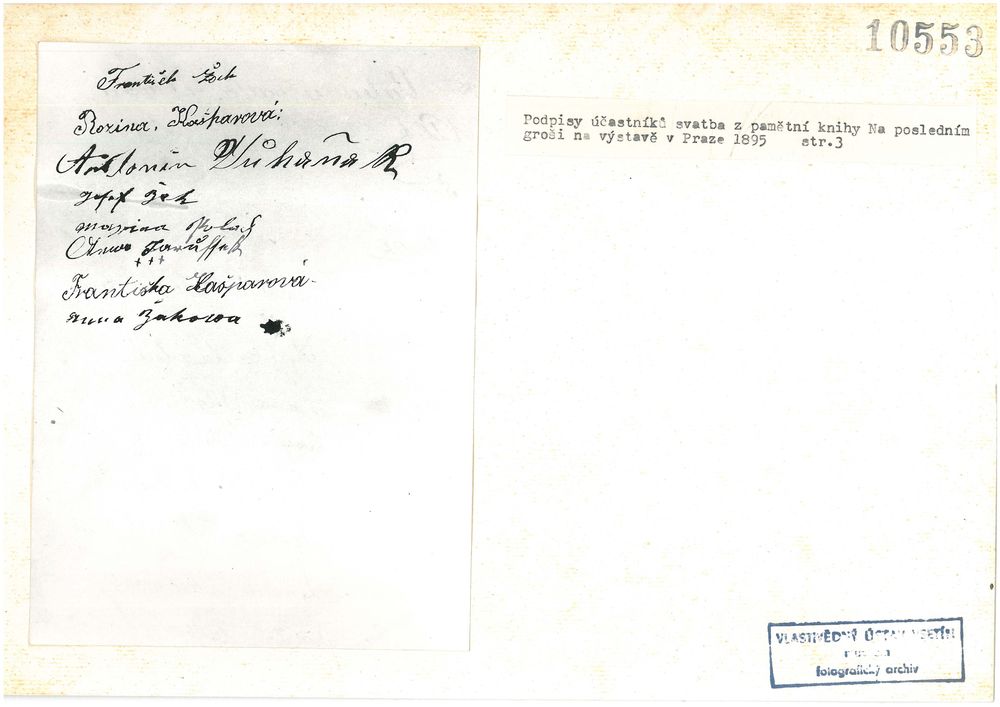 10553
František Žock
Rozina, Kašparová:
Antonín Vuhaňak
Josef Žák
Anna
+++
Františka Kašparová.
Anna Žakowa
Podpisy účastníků svatba z pamětní knihy Na posledním
groši na výstavě v Praze 1895 str.3
VLASTIVĚDNÝ ÚSTAV VSETÍN
fotografický archiv